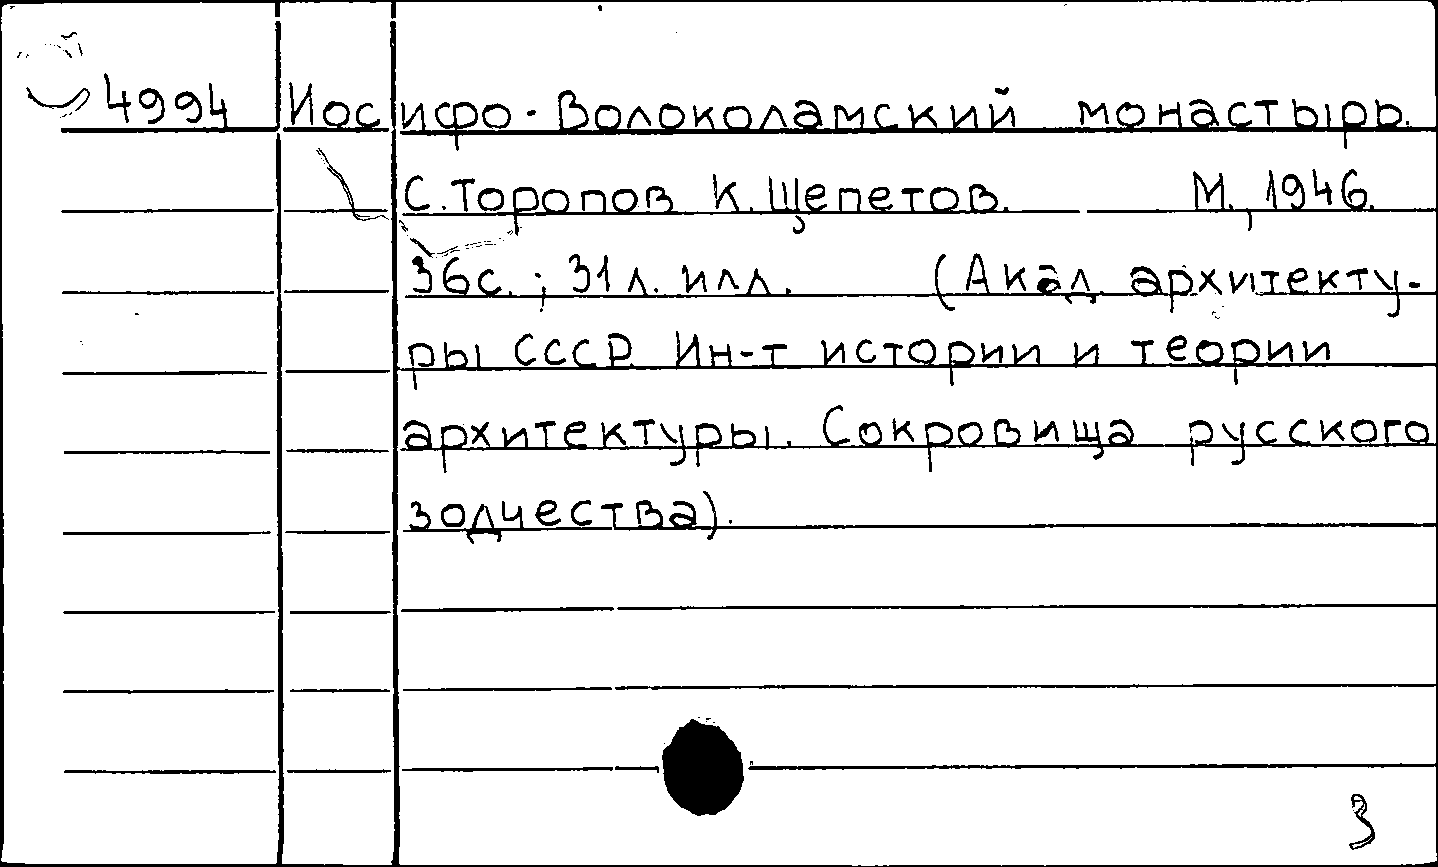 4994 Иосифо-Волоколамский монастырь.
С. Торопов К. Щепетов. М., 1946.
36с.; 31 л. илл. (Акад. архитекту-
ры СССР. Ин-т истории и теории
архитектуры. Сокровища русского
зодчества).
3